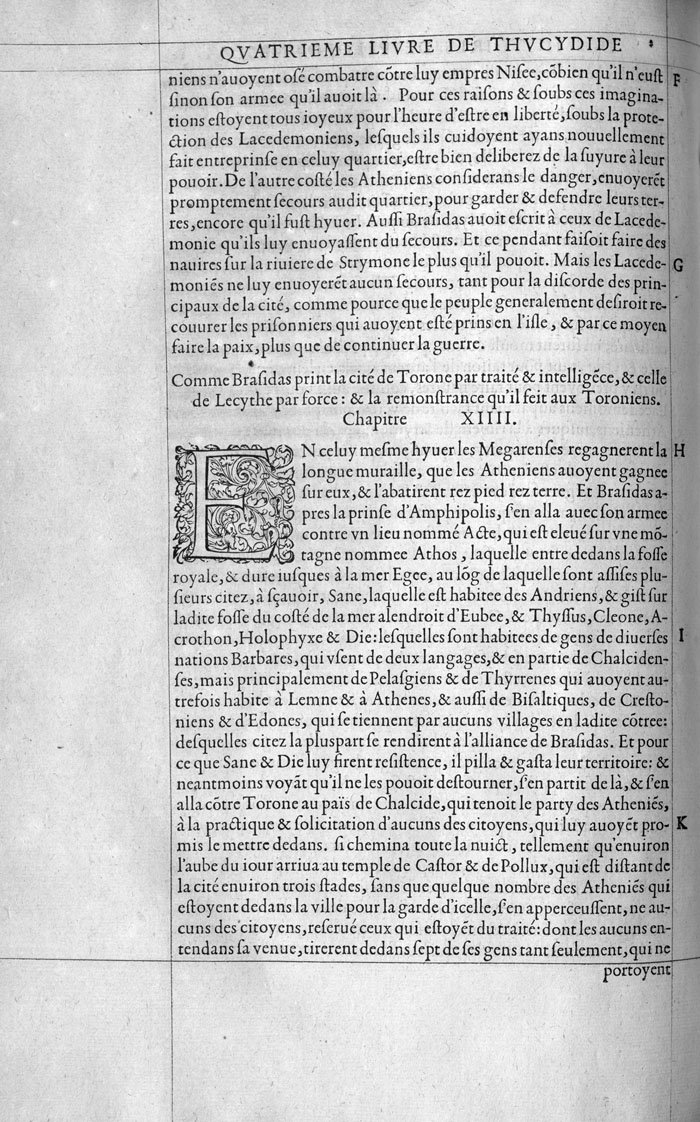 QVATRIEME LIVRE DE THVCYDIDE
niens n'auoyent osé combatre cõtre luy empres Nisee, cõbien qu'il n'eust F
sinon son armee qu'il auoit là . Pour ces raisons & soubs ces imagina-
tions estoyent tous ioyeux pour l'heure d'estre en liberté, soubs la prote-
ction des Lacedemoniens, lesquels ils cuidoyent ayans nouuellement
fait entreprinse en celuy quartier, estre bien deliberez de la suyure à leur
pouoir. De l'autre costé les Atheniens considerans le danger, enuoyerẽt
promptement secours audit quartier, pour garder & defendre leurs ter-
res, encore qu'il fust hyuer. Aussi Brasidas auoit escrit à ceux de Lacede-
monie qu'ils luy enuoyassent du secours. Et ce pendant faisoit faire des
nauires sur la riuiere de Strymone le plus qu'il pouoit. Mais les Lacede- G
moniẽs ne luy enuoyerẽt aucun secours, tant pour la discorde des prin-
cipaux de la cité, comme pource que le peuple generalement desiroit re-
couurer les prisonniers qui auoyent esté prins en l'isle, & par ce moyen
faire la paix, plus que de continuer la guerre.
Comme Brasidas print la cité de Torone par traité & intelligẽce, & celle
de Lecythe par force : & la remonstrance qu'il feit aux Toroniens.
Chapitre XIIII.
EN celuy mesme hyuer les Megarenses regagnerent la H
longue muraille, que les Atheniens auoyent gagnee
sur eux, & l'abatirent rez pied rez terre. Et Brasidas a-
pres la prinse d'Amphipolis, s'en alla auec son armee
contre vn lieu nommé Acte, qui est eleué sur vne mõ-
tagne nommee Athos, laquelle entre dedans la fosse
royale, & dure iusques à la mer Egee, au lõg de laquelle sont assises plu-
sieurs citez, à sçauoir, Sane, laquelle est habitee des Andriens, & gist sur
ladite fosse du costé de la mer alendroit d'Eubee, & Thyssus, Cleone, A-
crothon, Holophyxe & Die: lesquelles sont habitees de gens de diuerses I
nations Barbares, qui vsent de deux langages, & en partie de Chalciden-
ses, mais principalement de Pelasgiens & de Thyrrenes qui auoyent au-
trefois habite à Lemne & à Athenes, & aussi de Bisaltiques, de Cresto-
niens & d'Edones, qui se tiennent par aucuns villages en ladite cõtree:
desquelles citez la pluspart se rendirent à l'alliance de Brasidas. Et pour
ce que Sane & Die luy firent resistence, il pilla & gasta leur territoire: &
neantmoins voyãt qu'il ne les pouoit destourner, s'en partit de là, & s'en
alla cõtre Torone au païs de Chalcide, qui tenoit le party des Atheniẽs,
à la practique & solicitation d'aucuns des citoyens, qui luy auoyẽt pro- K
mis le mettre dedans. si chemina toute la nuict, tellement qu'enuiron
l'aube du iour arriua au temple de Castor & de Pollux, qui est distant de
la cité enuiron trois stades, sans que quelque nombre des Atheniẽs qui
estoyent dedans la ville pour la garde d'icelle, s'en apperceussent, ne au-
cuns des citoyens, reserué ceux qui estoyẽt du traité: dont les aucuns en-
tendans sa venue, tirerent dedans sept de ses gens tant seulement, qui ne
portoyent